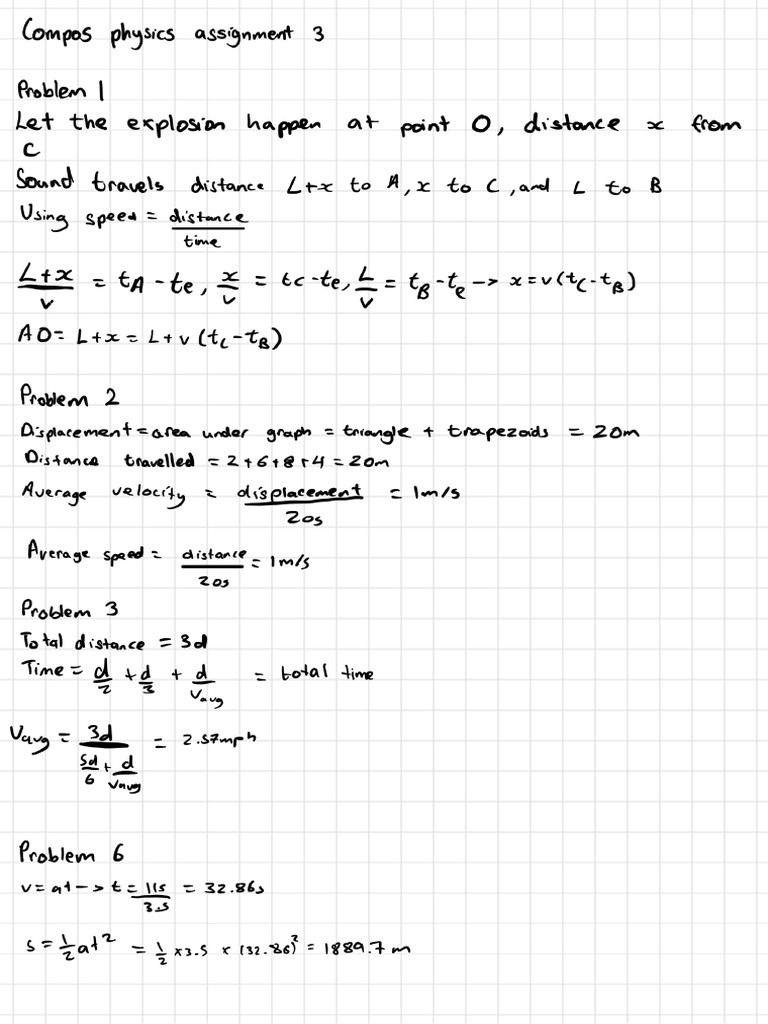 Compos physics assignment 3
Problem 1
Let the explosion happen at point O, distance x from
C
Sound travels distance L+x to A, x to C, and L to B
Using speed = distance/time
(L+x)/v = tA - te, x/v = tc - te, L/v = tB - te -> x = v(tC - tB)
AO = L+x = L+v (tC - tB)
Problem 2
Displacement = area under graph = triangle + trapezoids = 20m
Distance travelled = 2+6+8+4 = 20m
Average velocity = displacement/20s = 1m/s
Average speed = distance/20s = 1m/s
Problem 3
Total distance = 3d
Time = d/2 + d/3 + d/vavg = total time
Vavg = 3d/(5d/6 + d/vavg) = 2.57mph
Problem 6
v = at -> t = 115/3.5 = 32.86s
s = 1/2 at² = 1/2 x 3.5 x (32.86)² = 1889.7 m